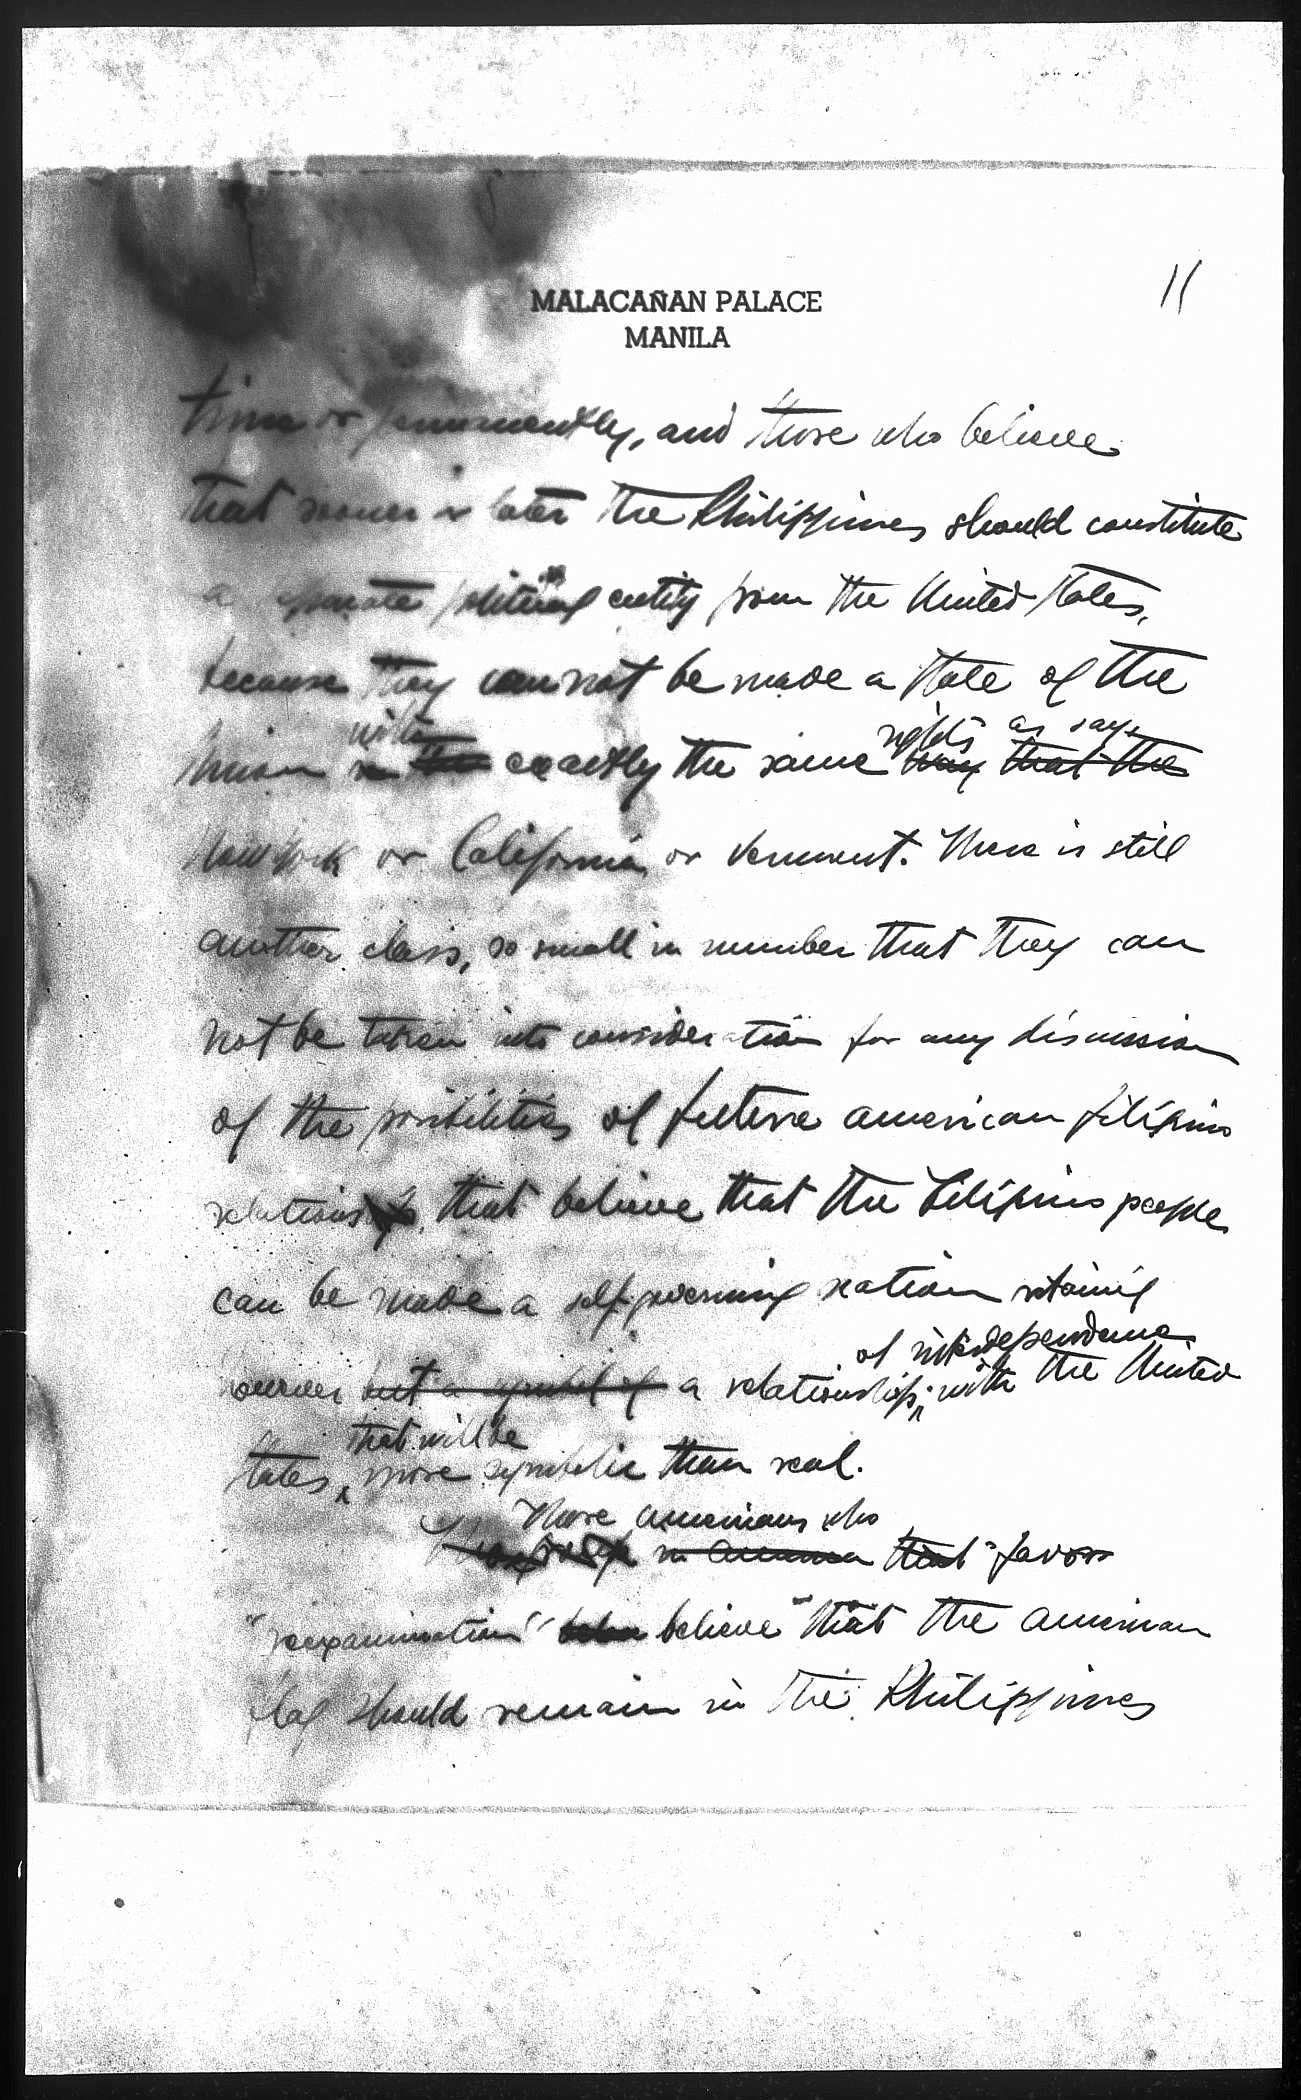 11
MALACAÑAN PALACE
MANILA
time or permanently, and those who believe
that sooner or later the Philippines should constitute
a separate political entity from the United States,
because they can not be made a State of the
with rights as say,
Union in the exactly the same way that the
New York or California, or Vermont. There is still
another class, so small in number that they can
not be taken into consideration for any discussion
of the possibilities of future american filipino
relations that believe that the Filipino people
can be made a self-governing nation retaining
of interdependence
however but a symbol of a relationship, with the United
that will be
States, more symbolic than real.
Those americans who
in America that favor
"reexamination" believe that the American
flag should remain in the Philippines